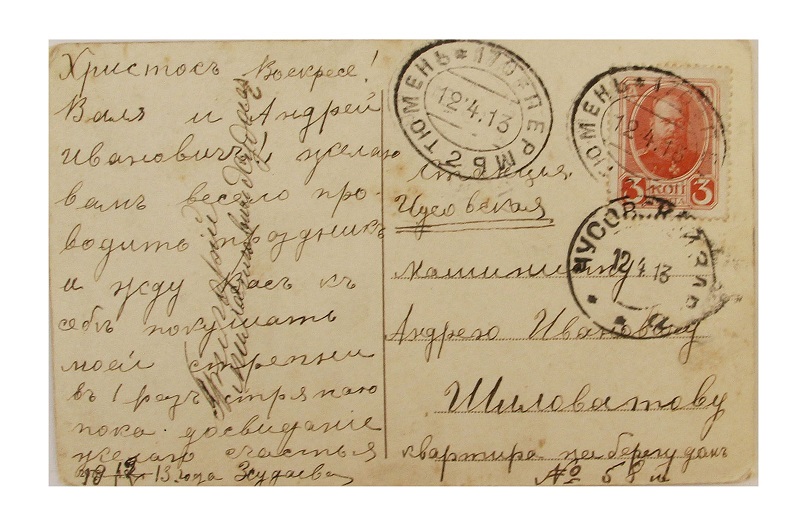 Христосъ Воскресе!
Валя и Андрей
Ивановичъ! желаю
вамъ весело про-
водить праздникъ
и жду васъ къ
себѣ покушать
моей стрепни
въ 1 разъ стряпаю
пока досвиданіе
желаю счастья
13 года
станция
Чусовская
машинисту
Андрею Ивановичу
Шиловатову
квартира на берегу
№ 58
ТЮМЕНЬ * 170 * ПЕРМЬ
12.4.13
2
ТЮМЕНЬ * 1
12.4.13
3 КОП 3
ЧУСОВ
12 4 13